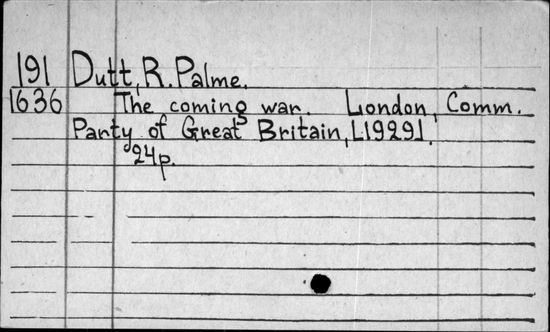 191 Dutt, R. Palme.
1636 The coming war. London, Comm.
Party of Great Britain, [1929].
24p.